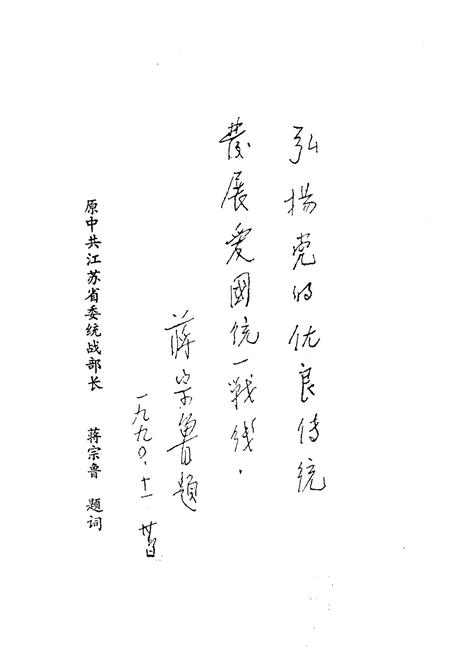 弘揚党的优良传統
發展爱國统一戰线.
蒋宗鲁題
一九九〇.十一.廿日
原中共江苏省委统战部长 蒋宗鲁 题词